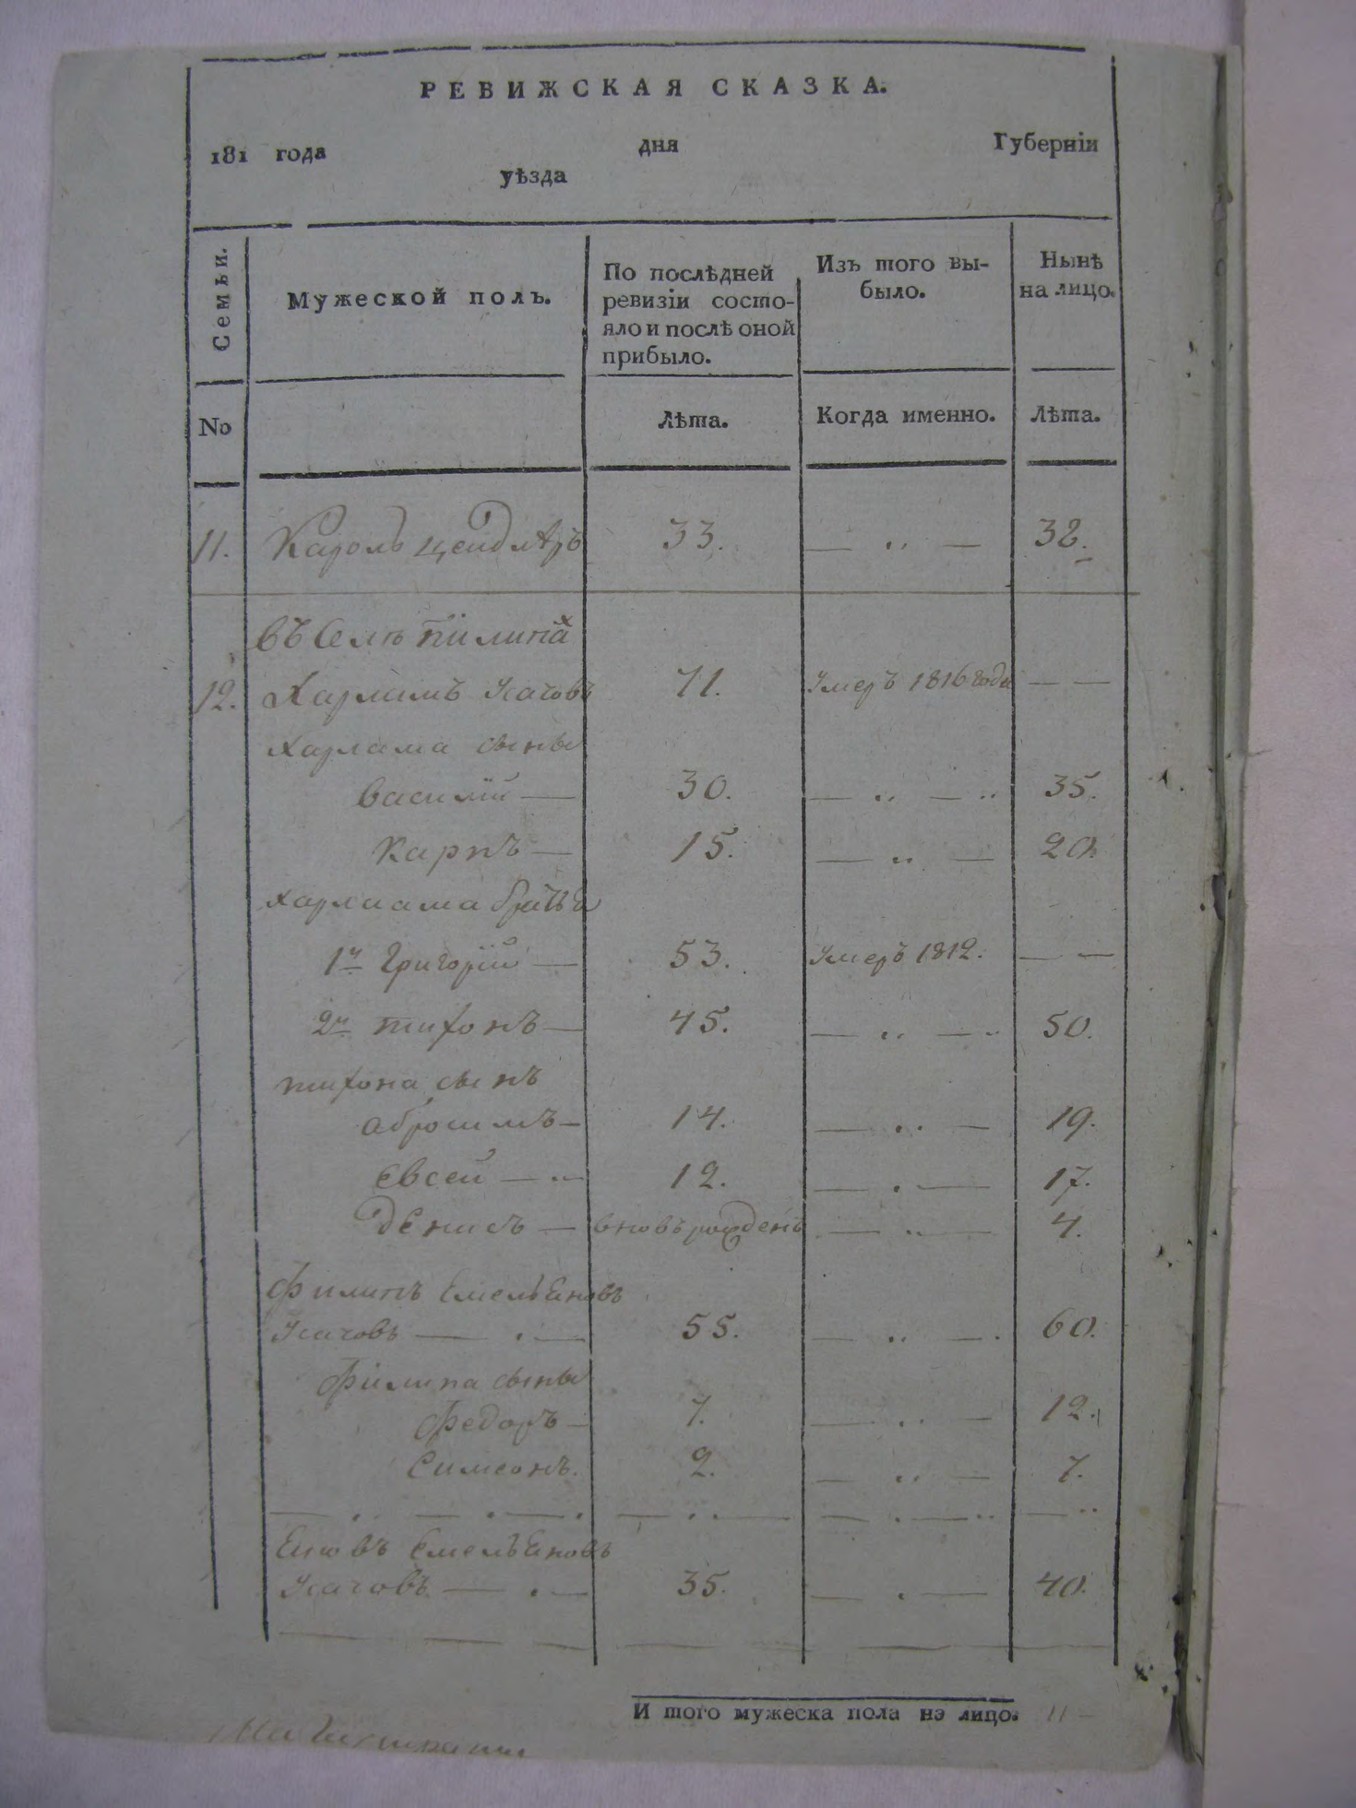 РЕВИЖСКАЯ СКАЗКА.
181 года дня Губерніи
уѣзда
Семьи. Мужеской полъ. По послѣдней ревизіи состояло и послѣ оной прибыло. Изъ того выбыло. Нынѣ на лицо.
No Лѣта. Когда именно. Лѣта.
11. Кароль 33. — „ — 38.
въ Селѣ
12. Харламъ Усачовъ 71. Умеръ 1816 года — —
Харлама сыны
Василій — 30. — „ — „ 35.
Карпъ — 15. — „ — 20.
Харлама братья
1й Григорій — 53. Умеръ 1812. — —
2й тихонъ — 45. — „ — „ 50.
тихона сынъ
абросимъ — 14. — „ — 19.
Евсей — „ 12. — . — 17.
денисъ — вновь рожденъ — „ — 4.
Филипъ Емельяновъ
Усачовъ — . — 55. — „ — . 60.
Филипа сыны
Федоръ — 7. — „ — 12.
Симеонъ. 2. — „ — 7.
Емельяновъ
Усачовъ — . — 35. — . — 40.
И того мужеска пола на лицо. 11 —